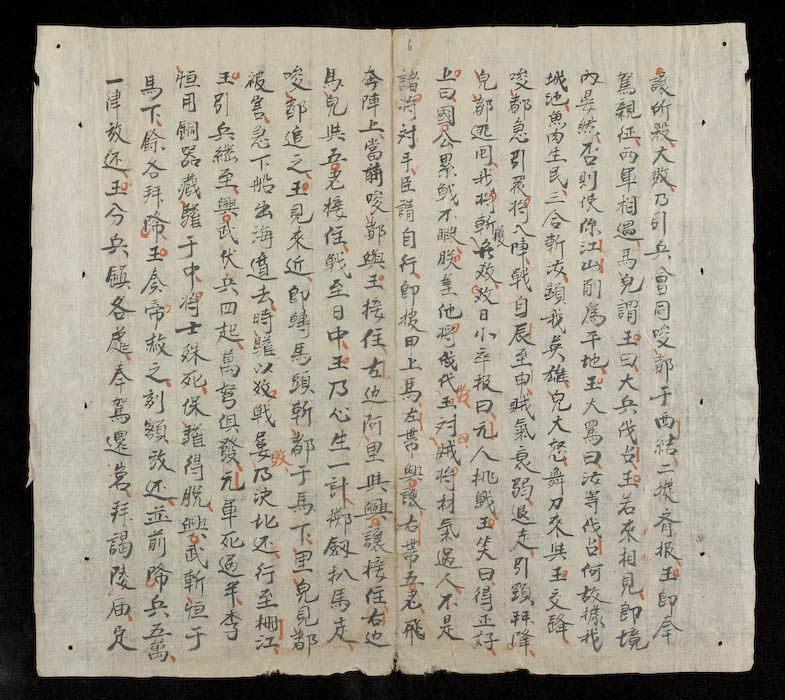 6
讓所殺大敗乃引兵會同唆都于西結二漢奔报王即命
駕親征两軍相遇馬兒謂王曰大兵伐占王若來相見即境
內晏然否則使你江山削為平地王大罵曰汝等伐占何故擾我
城池魚肉生民三合斬汝頭我英雄兒大怒舞刀來與王交鋒
唆都急引眾將入陣戰自辰至申賊氣衰弱退走引頸拜降
兒都逃囘我將斬獲無数数日小卒报曰元人挑戰王笑曰得正好
上曰國公累戰不暇朕差他將伐代王对曰賊將材氣過人不是
諸將对手臣請自行即披甲上馬左帶興讓右帶五老飛
奔陣上當前唆都與王接住左边阿里與興讓接住右边
馬兒與五老接住戰至日中王乃心生一計擲劔扒馬走
唆都追之王見來近即轉馬頭斬都于馬下里兒見都
被害急下船出海遁去時驩以数戰屡敗乃決北还行至柵江
王引兵继至興武伏兵四起萬弩俱發元軍死過半李
恒用銅器藏驩于中將士殊死保驩得脫興武斬恒于
馬下餘各拜降王奏帝赦之刻額放还並前降兵五萬
一律放还王分兵鎮各處奉駕還崀拜謁陵庙定